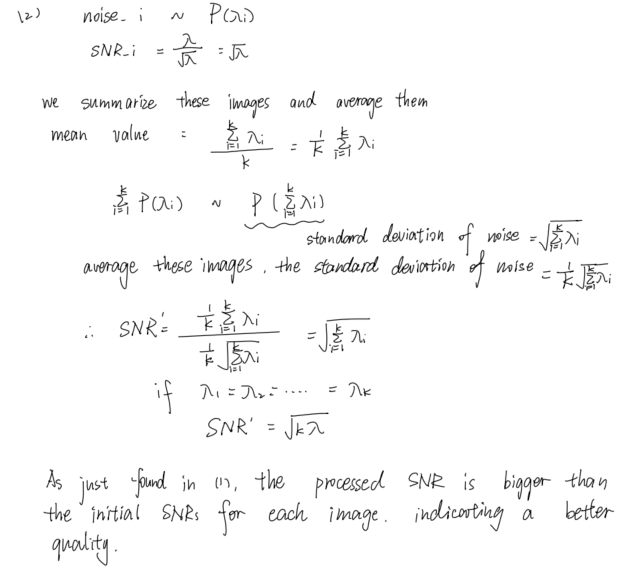 (2) noise_i ~ P(λi)
SNR_i = λ/√λ = √λ
we summarize these images and average them
mean value = (∑_{i=1}^{k} λi)/k = 1/k ∑_{i=1}^{k} λi
∑_{i=1}^{k} P(λi) ~ P(∑_{i=1}^{k} λi)
standard deviation of noise = √(∑_{i=1}^{k} λi)
average these images, the standard deviation of noise = 1/k √(∑_{i=1}^{k} λi)
∴ SNR' = (1/k ∑_{i=1}^{k} λi)/(1/k √(∑_{i=1}^{k} λi)) = √(∑_{i=1}^{k} λi)
if λ1 = λ2 = ···· = λk
SNR' = √(kλ)
As just found in (1), the processed SNR is bigger than
the initial SNRs for each image. indicating a better
quality.